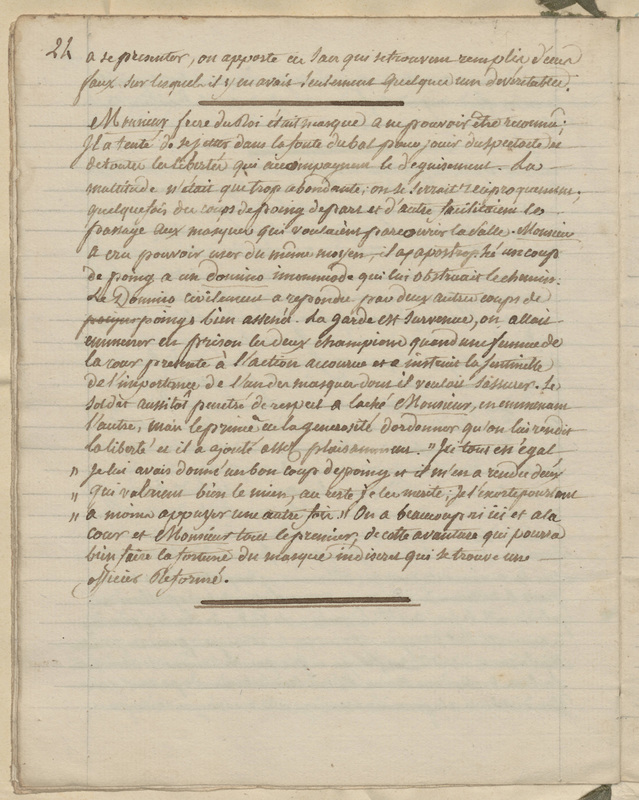 24
a se presenter, on apporte ces sacs qui se trouvent remplis d'ecus
faux sur lesquels il y en avait seulement quelques uns de veritables.
Monsieur frere du Roi était masqué a ne pouvoir être reconnu;
Il a tenté de se jetter dans la foule du bal pour jouir du spectacle et
de toutes les libertés qui accompagnent le deguisement. La
multitude n'était que trop abondante; on se serrait reciproquement,
quelquefois des coups de poing de part et d'autre facilitaient le
passage aux masques qui voulaient parcourir la salle. Monsieur
a cru pouvoir user du même moyen, il a apostrophé un coup
de poing a un domino incommode qui lui obstruait le chemin.
Le Domino civilement a repondu par deux autres coups de
poings bien assené. La garde est survenue, on allait
emmener en prison les deux champions quand une femme de
la cour presente à l'action accourue et a instruit la sentinelle
de l'importance de l'un des masques dont il voulait s'assurer. Le
soldat aussitôt penetré de respect a laché Monsieur, en emmenant
l'autre; mais le prince a eu la generosité d'ordonner qu'on lui rendit
la liberté et il a ajouté assez plaisamment. " Je tout est égal
" Je lui avais donné un bon coup de poing et il m'en a rendu deux
" qui valaient bien le mien, au reste je les merite; je l'exorte pourtant
" a moins appuyer une autre fois." On a beaucoup ri ici et a la
cour et Monsieur tout le premier, de cette avanture qui pourra
bien faire la fortune du masque indiscret qui se trouve un
officier Reformé.